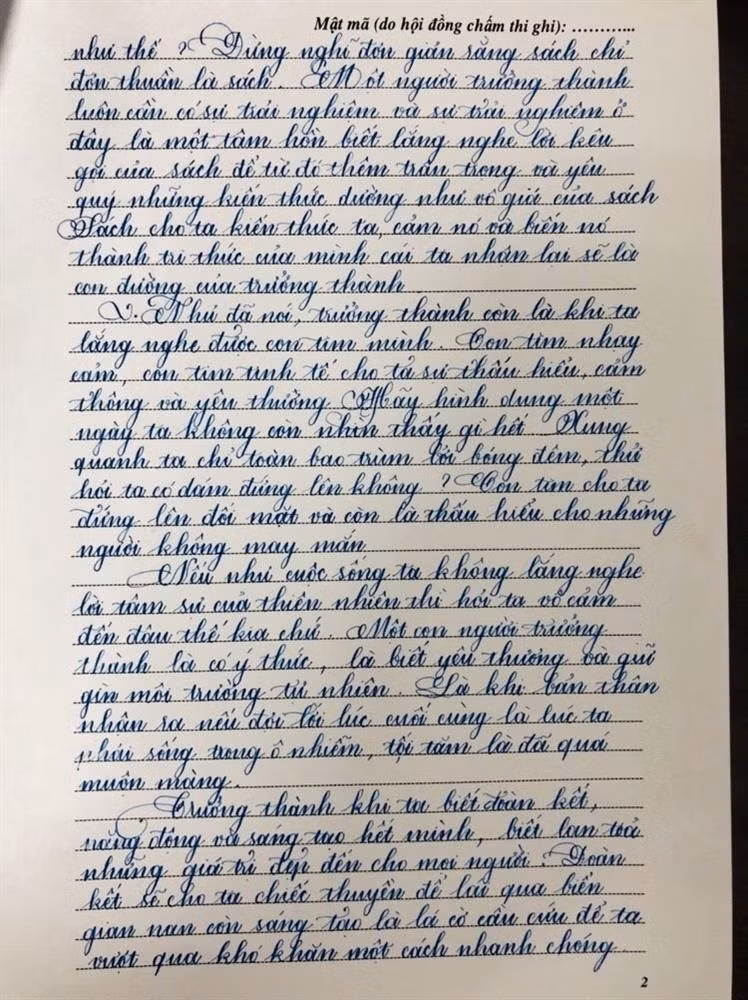 Mật mã (do hội đồng chấm thi ghi): ............
như thế ? Đừng nghĩ đơn giản rằng sách chỉ
đơn thuần là sách. Một người trưởng thành
luôn cần có sự trải nghiệm và sự trải nghiệm ở
đây là một tâm hồn biết lắng nghe lời kêu
gọi của sách để từ đó thêm trân trọng và yêu
quý những kiến thức dường như vô giá của sách
Sách cho ta kiến thức ta, cảm nó và biến nó
thành tri thức của mình cái ta nhận lại sẽ là
con đường của trưởng thành.
Như đã nói, trưởng thành còn là khi ta
lắng nghe được con tim mình. Con tim nhạy
cảm, con tim tinh tế cho ta sự thấu hiểu, cảm
thông và yêu thương. Hãy hình dung một
ngày ta không còn nhìn thấy gì hết. Xung
quanh ta chỉ toàn bao trùm bởi bóng đêm, thử
hỏi ta có dám đứng lên không ? Con tim cho ta
đứng lên đối mặt và còn là thấu hiểu cho những
người không may mắn
Nếu như cuộc sống ta không lắng nghe
lời tâm sự của thiên nhiên thì hỏi ta vô cảm
đến đâu thế kia chứ. Một con người trưởng
thành là có ý thức, là biết yêu thương và giữ
gìn môi trường tự nhiên. Là khi bản thân
nhận ra nếu đợi tới lúc cuối cùng là lúc ta
phải sống trong ô nhiễm, tối tăm là đã quá
muộn màng.
Trưởng thành khi ta biết đoàn kết,
năng động và sáng tạo hết mình, biết lan toả
những giá trị đẹp đến cho mọi người. Đoàn
kết sẽ cho ta chiếc thuyền để lái qua biển
gian nan còn sáng tạo là lá cờ cầu cứu để ta
vượt qua khó khăn một cách nhanh chóng.
2